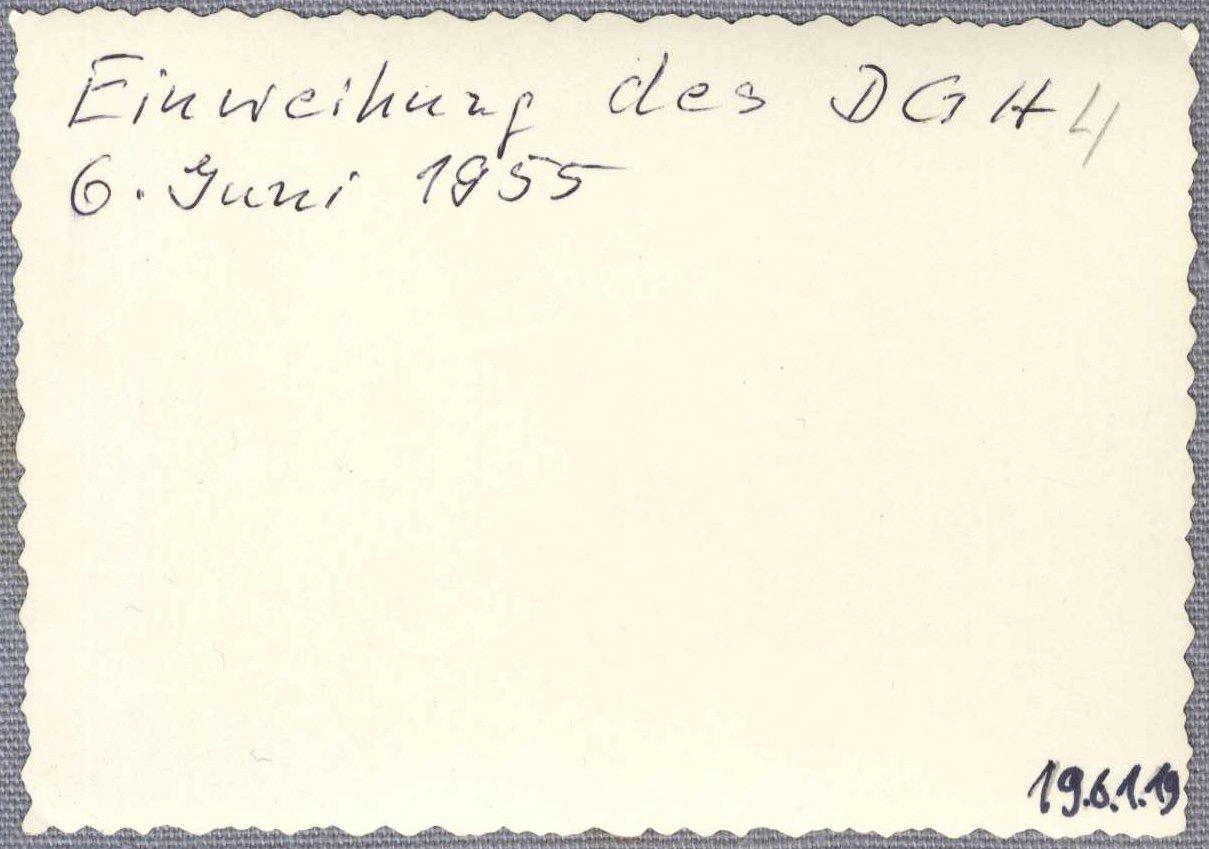 Einweihung des DGH 4
6. Juni 1955
19.6.1.19